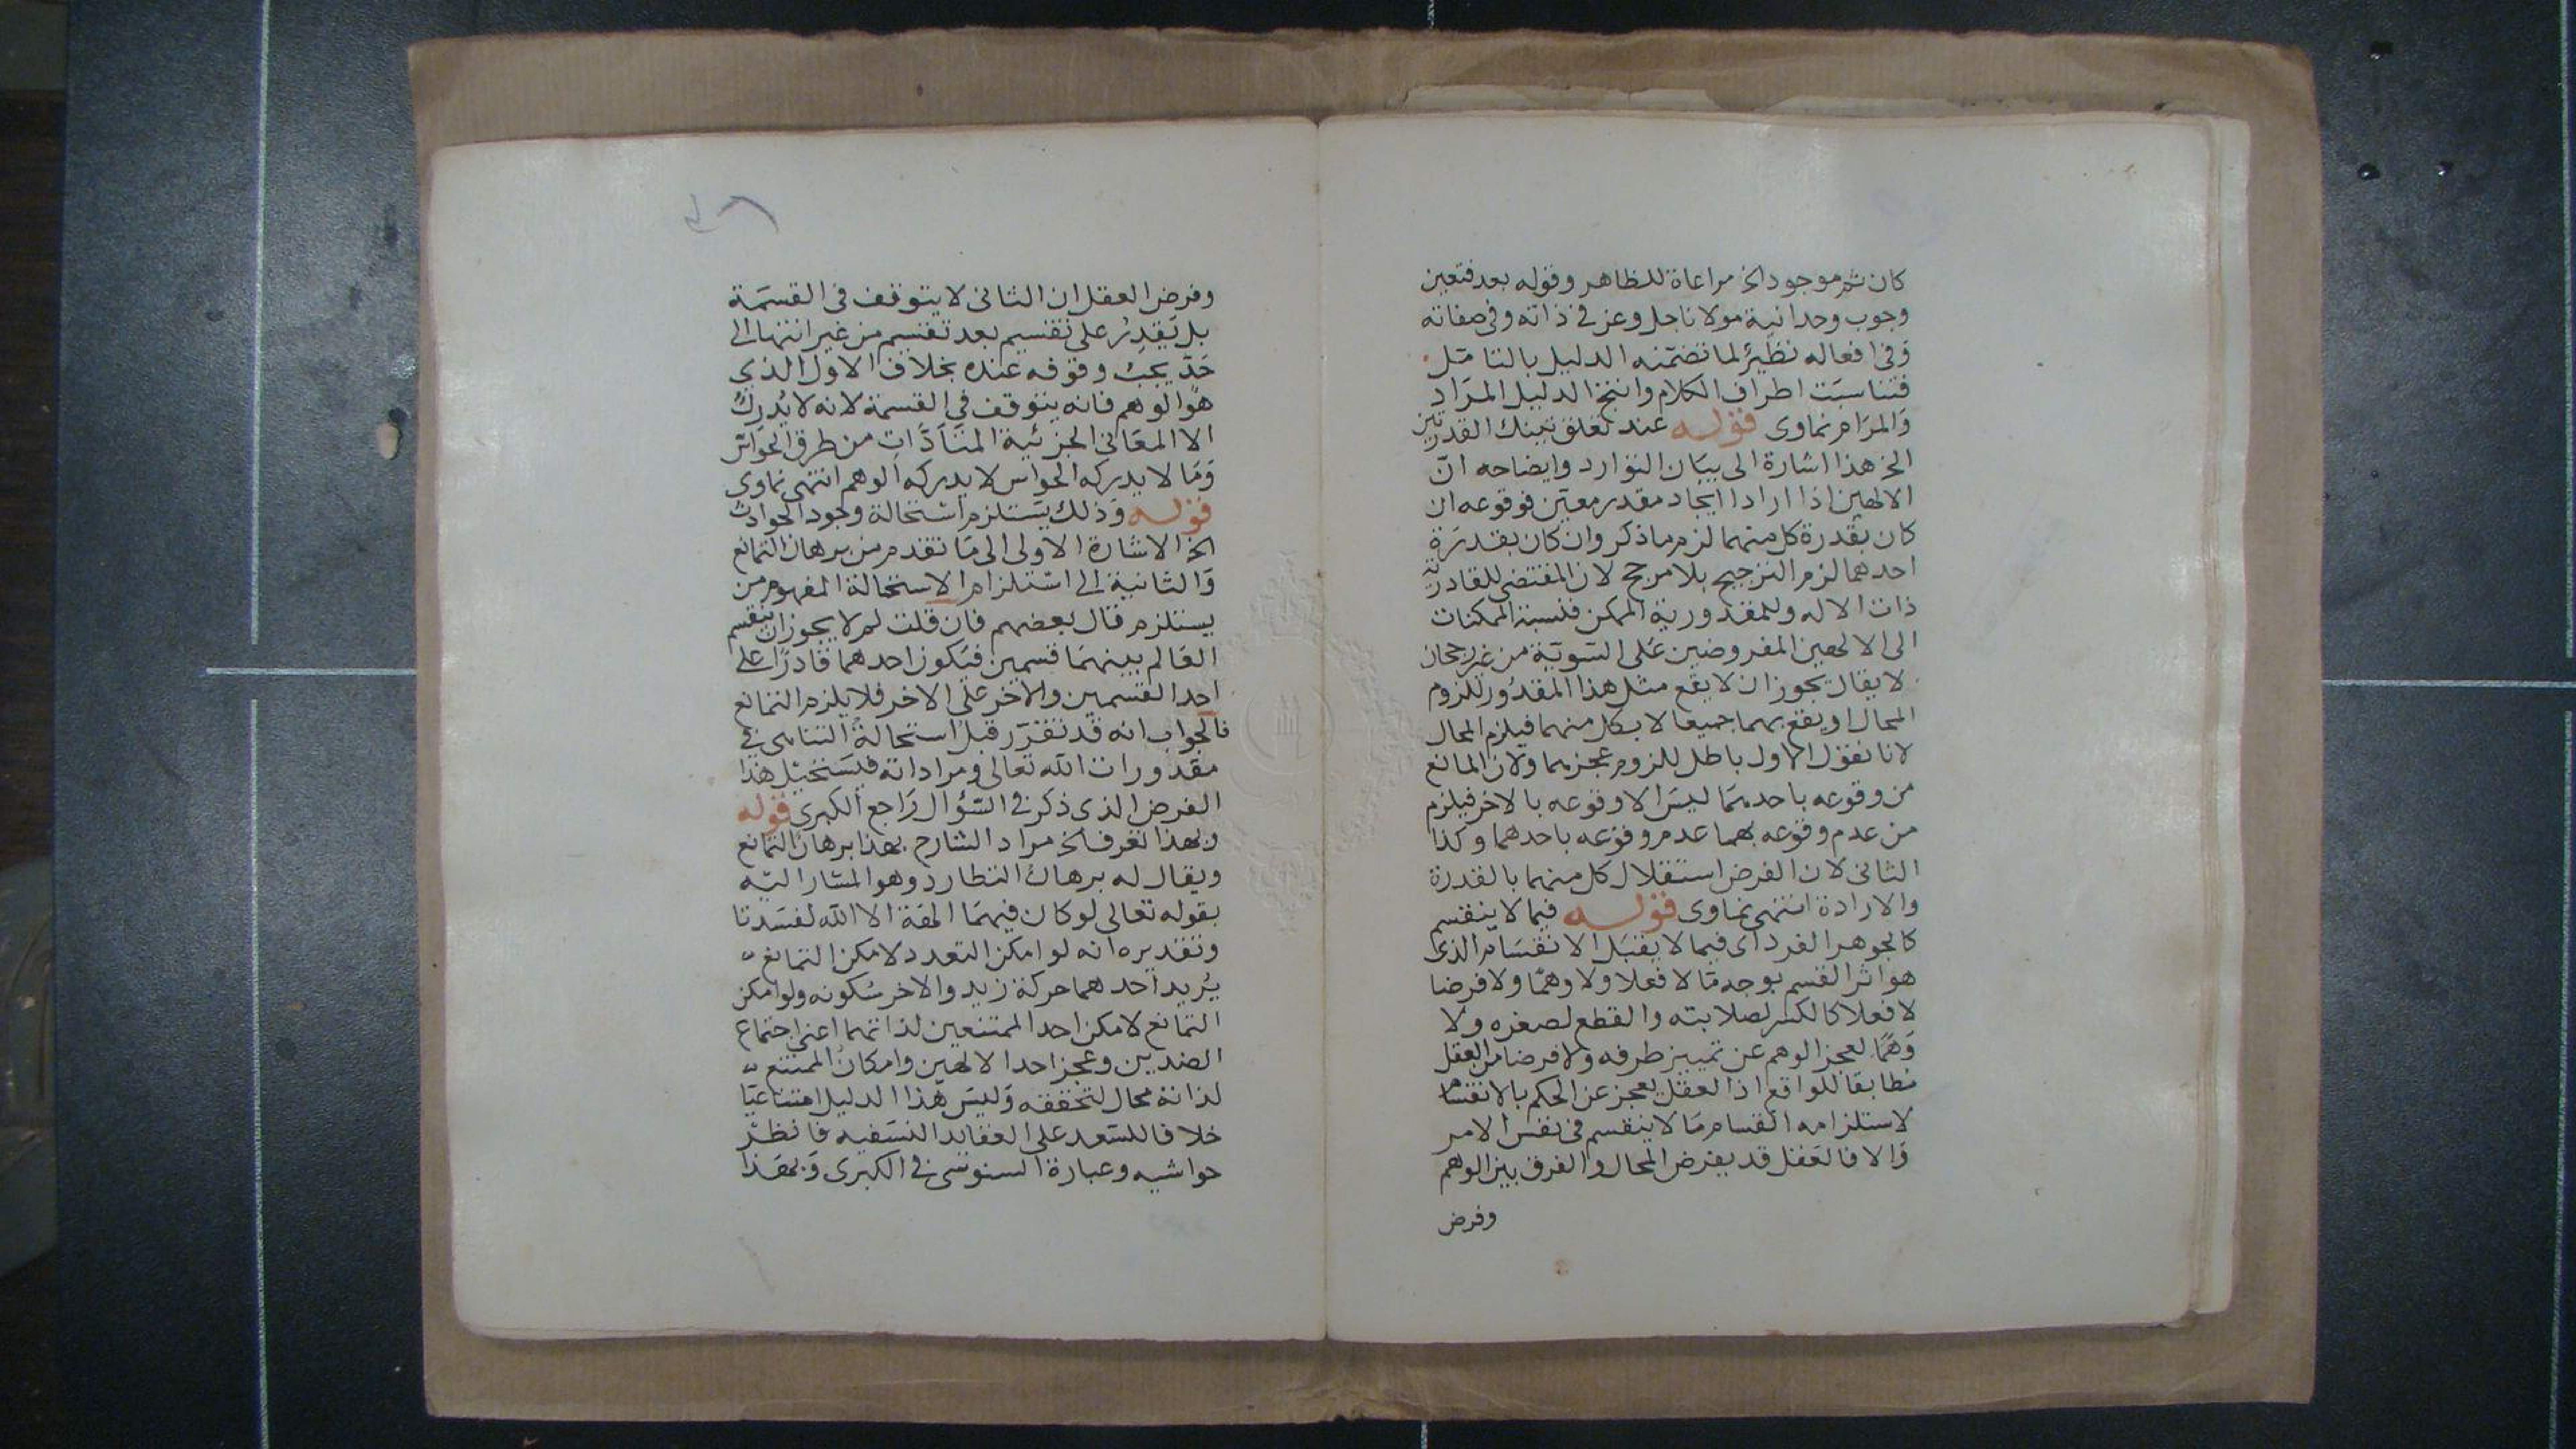 كان ثم موجود الخ مراعاة للظاهر وقوله بعد فتعين
وجوب وحدانية مولانا جل وعز في ذاته وفي صفاته
وفي افعاله نظير لما تضمنه الدليل بالتامل
فتناسبت اطراف الكلام وانتج الدليل المراد
والمرام نماوى قوله عند تعلق تينك القدرتين
الخ هذا اشارة الى بيان التوارد وايضاحه ان
الالهين اذا ارادا ايجاد مقدر معين فوقوعه ان
كان بقدرة كل منهما لزم ما ذكر وان كان بقدرة
احدهما لزم الترجيح بلا مرجح لان المقتضى للقادرية
ذات الاله وللمقدورية الممكن فنسبة الممكنات
الى الالهين المفروضين على السوية من غير رجحان
لا يقال يجوز ان لا يقع مثل هذا المقدور للزوم
المحال او يقع بهما جميعا لا بكل منهما فيلزم المحال
لانا نقول الاول باطل للزوم عجزهما ولان المانع
من وقوعه باحدهما ليس الا وقوعه بالاخر فيلزم
من عدم وقوعه بهما عدم وقوعه باحدهما وكذا
الثاني لان الفرض استقلال كل منهما بالقدرة
والارادة انتهى نماوى قوله فيما لا ينقسم
كالجوهر الفرد اى فيما لا يقبل الانقسام الذى
هو اثر القسم بوجه ما لا فعلا ولا وهما ولا فرضا
لا فعلا كالكسر لصلابته والقطع لصغره ولا
وهما لعجز الوهم عن تمييز طرفه ولا فرضا من العقل
مطابقا للواقع اذ العقل يعجز عن الحكم بالانقسام
لاستلزامه انقسام ما لا ينقسم في نفس الامر
والا فالعقل قد يفرض المحال والفرق بين الوهم
وفرض
وفرض العقل ان الثاني لا يتوقف في القسمة
بل يقدر على تقسيم بعد تقسيم من غير انتها الى
حد يجب وقوفه عنده بخلاف الاول الذي
هو الوهم فانه يتوقف في القسمة لانه لا يدرك
الا المعاني الجزئية المتأدات من طرق الحواس
وما لا يدركه الحواس لا يدركه الوهم انتهى نماوى
قوله وذلك يستلزم استحالة وجود الحوادث
الخ الاشارة الاولى الى ما تقدم من برهان التمانع
والثانية الى استلزام الاستحالة المفهوم من
يستلزم قال بعضهم فان قلت لم لا يجوز ان ينقسم
العالم بينهما قسمين فيكون احدهما قادرا على
احد القسمين والاخر على الاخر فلا يلزم التمانع
فالجواب انه قد تقرر قبل استحالة التناهى في
مقدورات الله تعالى ومراداته فيستحيل هذا
الفرض الذى ذكر في السؤال راجع الكبرى قوله
وبهذا تعرف الخ مراد الشارح بهذا برهان التمانع
ويقال له برهان التطارد وهو المشار اليه
بقوله تعالى لو كان فيهما الهة الا الله لفسدتا
وتقديره انه لو امكن التعدد لامكن التمانع
يريد احدهما حركة زيد والاخر سكونه ولو امكن
التمانع لامكن احد الممتنعين لذاتهما اعنى اجتماع
الضدين وعجز احد الالهين وامكان الممتنع
لذاته محال لتحققه وليس هذا الدليل امتناعيا
خلافا للسعد على العقايد النسفيه فانظر
حواشيه وعبارة السنوسى في الكبرى وبهذا